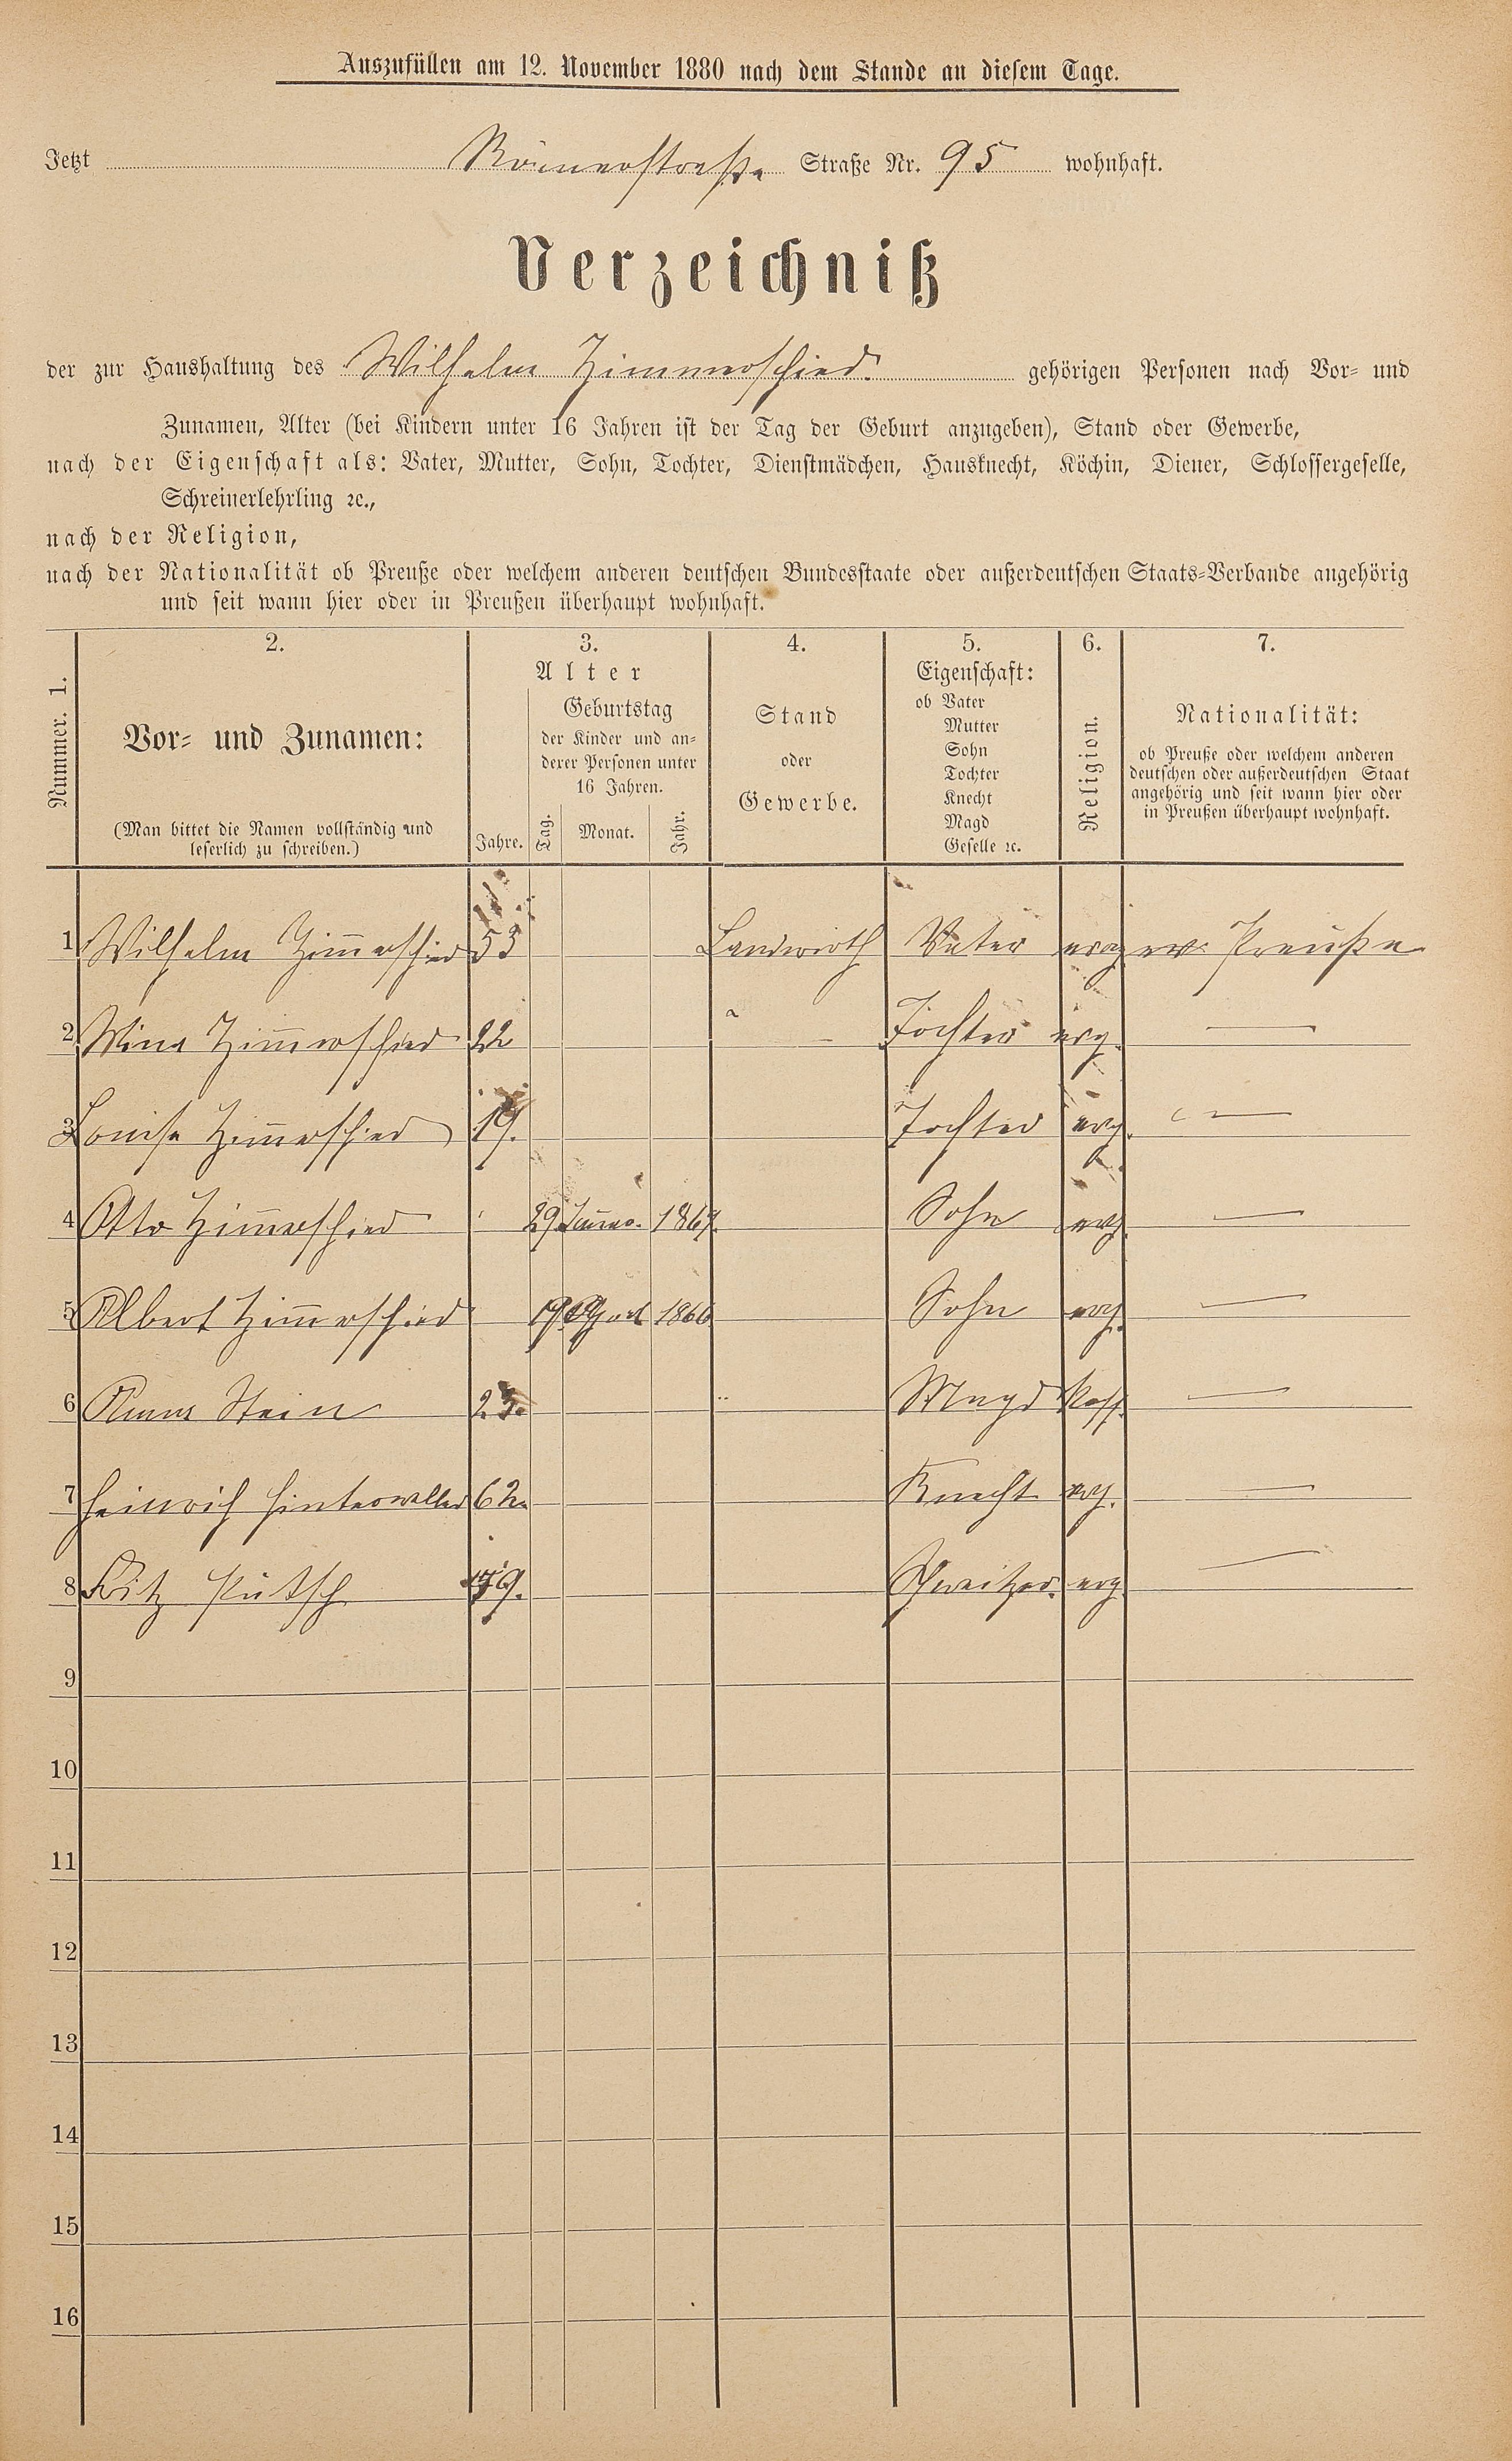 Auszufüllen am 12. November 1880 nach dem Stande an diesem Tage.
Jetzt Römerstraße Straße Nr. 95 wohnhaft.
Verzeichniß
der zur Haushaltung des Wilhelm Zimmerschied. gehörigen Personen nach Vor- und
Zunamen, Alter (bei Kindern unter 16 Jahren ist der Tag der Geburt anzugeben), Stand oder Gewerbe,
nach der Eigenschaft als: Vater, Mutter, Sohn, Tochter, Dienstmädchen, Hausknecht, Köchin, Diener, Schlossergeselle,
Schreinerlehrling ꝛc.,
nach der Religion,
nach der Nationalität ob Preuße oder welchem anderen deutschen Bundesstaate oder außerdeutschen Staats-Verbande angehörig
und seit wann hier oder in Preußen überhaupt wohnhaft.
Nummer. 1.
2.
Vor- und Zunamen:
(Man bittet die Namen vollständig und
leserlich zu schreiben.)
3.
Alter
Jahre.
Geburtstag
der Kinder und an-
derer Personen unter
16 Jahren.
Tag. Monat. Jahr.
4.
Stand
oder
Gewerbe.
5.
Eigenschaft:
ob Vater
Mutter
Sohn
Tochter
Knecht
Magd
Geselle ꝛc.
6.
Religion.
7.
Nationalität:
ob Preuße oder welchem anderen
deutschen oder außerdeutschen Staat
angehörig und seit wann hier oder
in Preußen überhaupt wohnhaft.
1 Wilhelm Zim̅erschied 53 Landwirth Vater Preuße
2 Mina Zim̅erschied 22 Tochter evg.
3 Louise Zim̅erschied 19. Tochter evg.
4 Otto Zim̅erschied 29 1867. Sohn evg.
5 Albert Zim̅erschied 19 1866 Sohn evg.
6 Anna Stein 23. Magd Kath.
7 Heinrich Hinterweller 62. Knecht evg.
8 Fritz Pütsch 19. Schweitzer. evg.
9
10
11
12
13
14
15
16